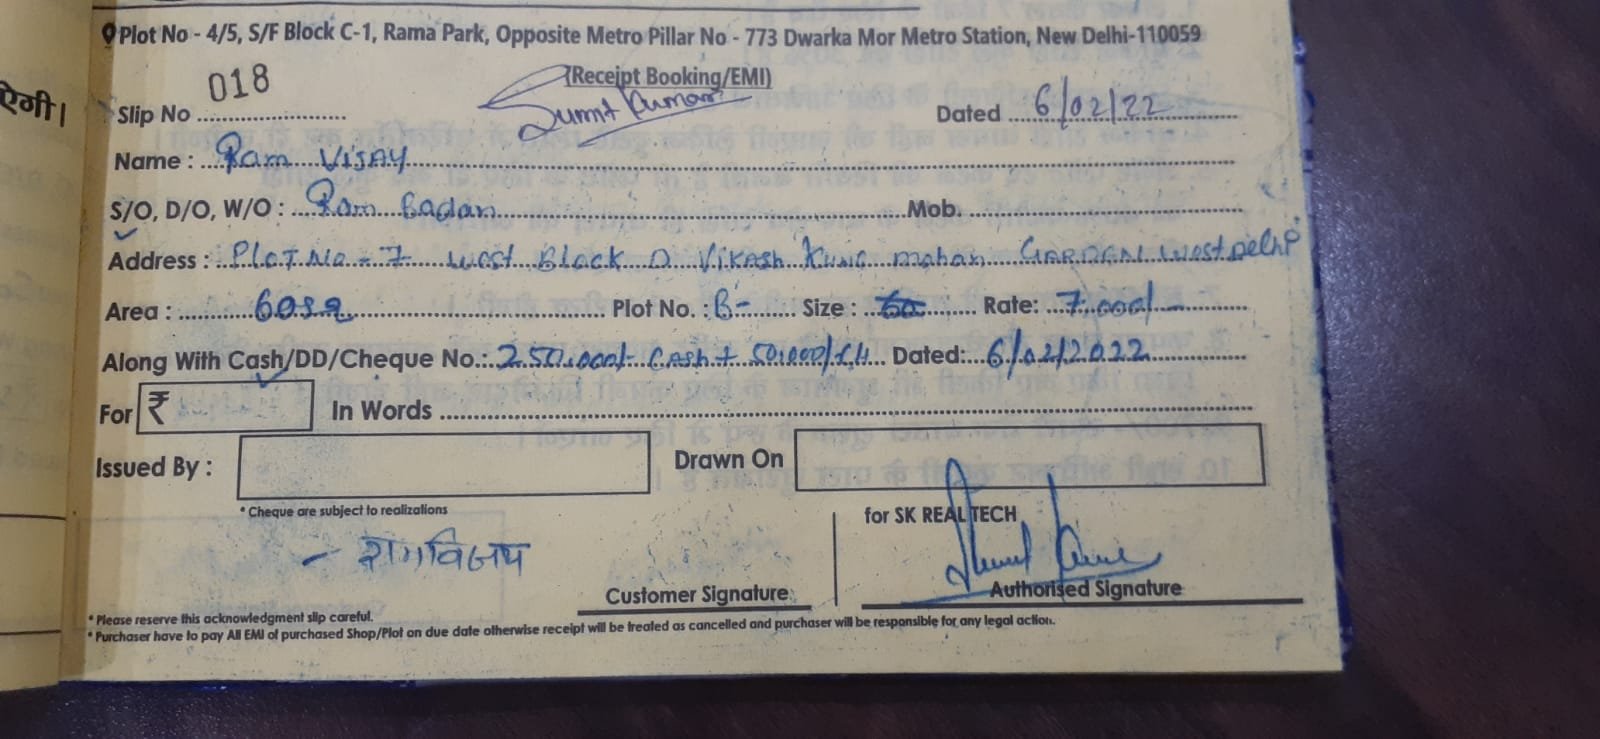 Plot No - 4/5, S/F Block C-1, Rama Park, Opposite Metro Pillar No - 773 Dwarka Mor Metro Station, New Delhi-110059
(Receipt Booking/EMI)
ऐगी।
Slip No 018 Sumit Kumar Dated 6/02/22
Name : Ram VIJAY
S/O, D/O, W/O : Ram Badan Mob.
Address : PLOT No - 7 West Block D Vikash Kunj mohan GARDEN West Delhi
Area : 60 Plot No. : B- Size : Rate: 7,000/-
Along With Cash/DD/Cheque No.: 250,000/- CASH + 50,000/ Dated: 6/02/2022
For ₹ In Words
Issued By : Drawn On
* Cheque are subject to realizations
for SK REAL TECH
- रामविजय
Customer Signature Authorised Signature
* Please reserve this acknowledgment slip careful.
* Purchaser have to pay All EMI of purchased Shop/Plot on due date otherwise receipt will be treated as cancelled and purchaser will be responsible for any legal action.